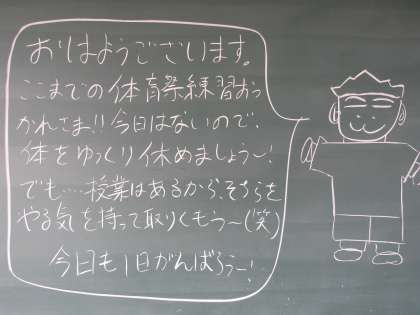 おはようございます。
ここまでの体育祭練習おつ
かれさま!!今日はないので、
体をゆっくり休めましょう〜!
でも……授業はあるから、そちらを
やる気を持って取りくもう〜(笑)
今日も1日がんばろう〜!